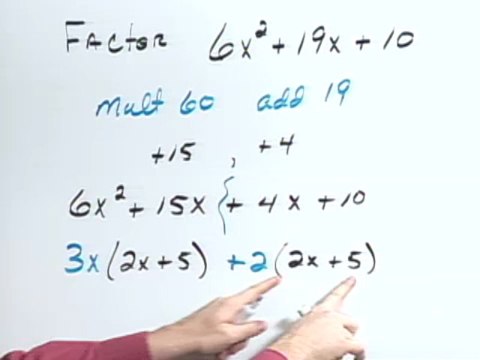 Factor 6x² + 19x + 10
mult 60 add 19
+15 , +4
6x² + 15x { + 4x + 10
3x(2x + 5) + 2(2x + 5)